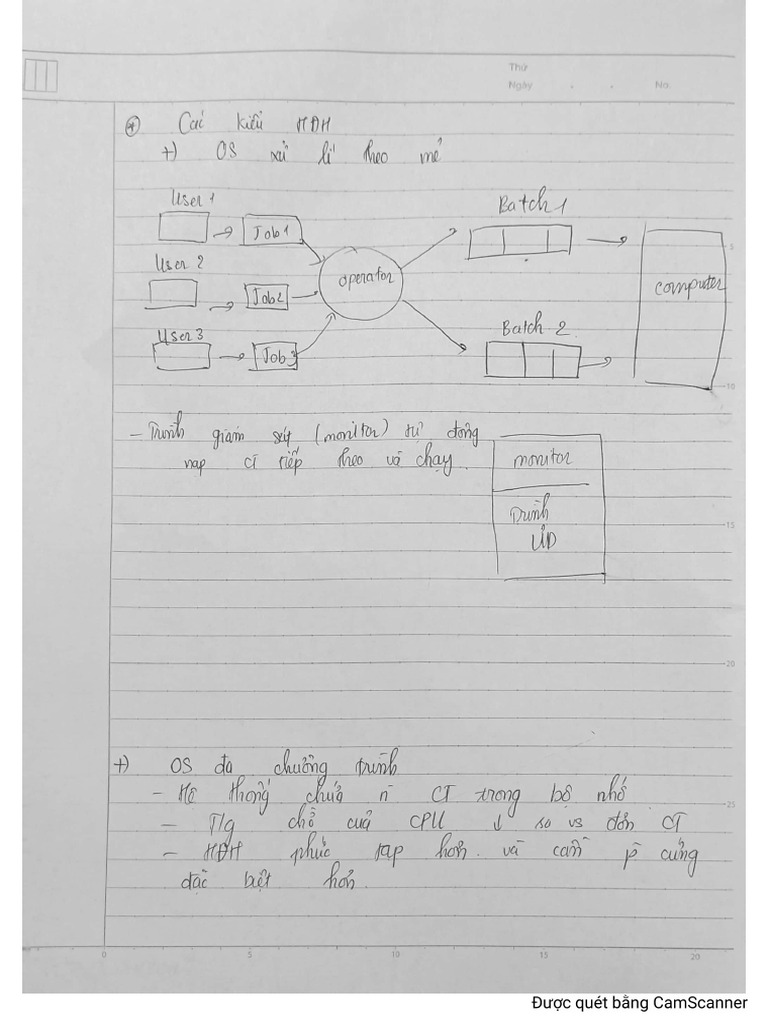 Thứ
Ngày . . No
⊛ Các kiểu HĐH
+) OS xử lí theo mẻ
User 1
Job 1
User 2
Job 2
User 3
Job 3
operator
Batch 1
Batch 2
computer
- Trình giám sát (monitor) tự động
nạp CT tiếp theo và chạy.
monitor
Trình
ƯD
+) OS đa chương trình
- Hệ thống chứa n CT trong bộ nhớ
- T/g chờ của CPU ↓ so vs đơn CT
- HĐH phức tạp hơn và cần p cứng
đặc biệt hơn.
5
10
15
20
25
0 5 10 15 20
Được quét bằng CamScanner